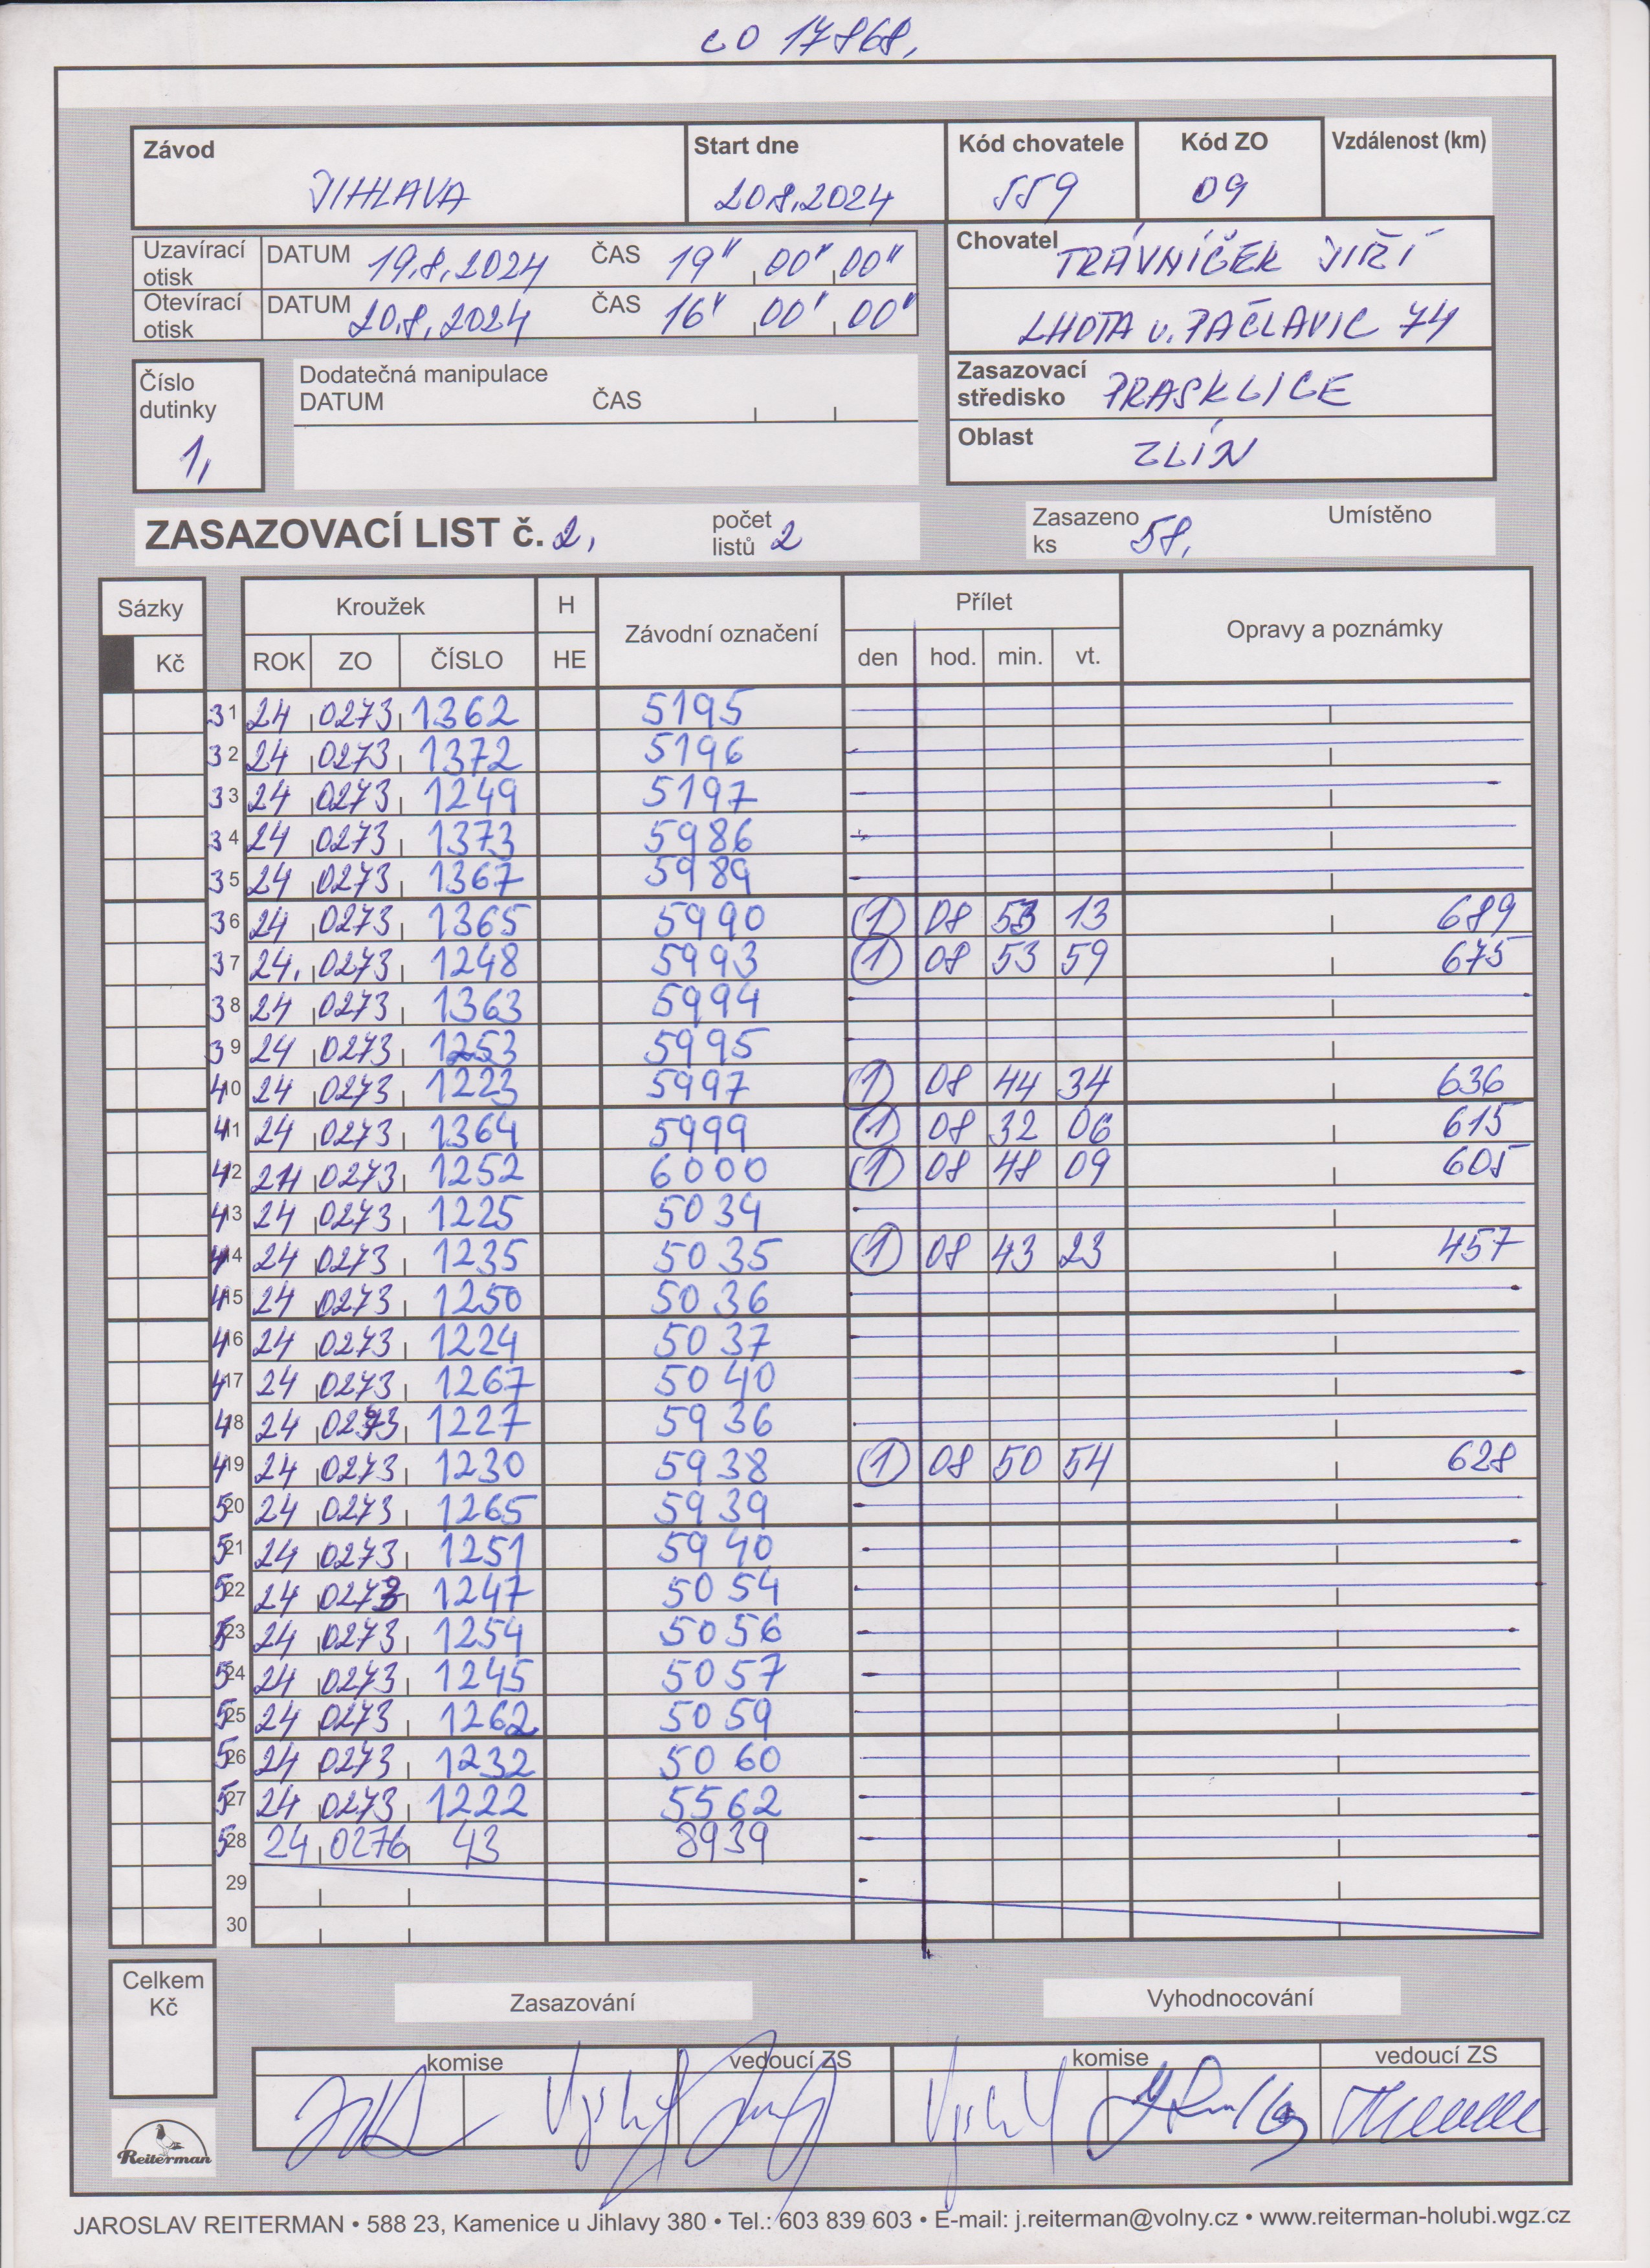 CO 17868,
Závod Start dne Kód chovatele Kód ZO Vzdálenost (km)
JIHLAVA 20.8.2024 559 09
Uzavírací otisk DATUM 19.8.2024 ČAS 19" 00" 00"
Chovatel TRÁVNÍČEK JIŘÍ
Otevírací otisk DATUM 20.8.2024 ČAS 16" 00" 00"
LHOTA u. PAČLAVIC 74
Číslo dutinky 1,
Dodatečná manipulace
DATUM ČAS
Zasazovací středisko PRASKLICE
Oblast ZLÍN
ZASAZOVACÍ LIST č. 2, počet listů 2 Zasazeno ks 58, Umístěno
Sázky Kroužek H Závodní označení Přílet Opravy a poznámky
Kč ROK ZO ČÍSLO HE den hod. min. vt.
31 24 0273 1362 5195
32 24 0273 1372 5196
33 24 0273 1249 5197
34 24 0273 1373 5986
35 24 0273 1367 5989
36 24 0273 1365 5990 1 08 53 13 689
37 24. 0273 1248 5993 1 08 53 59 675
38 24 0273 1363 5994
39 24 0273 1253 5995
40 24 0273 1223 5997 1 08 44 34 636
41 24 0273 1364 5999 1 08 32 06 615
42 24 0273 1252 6000 1 08 48 09 605
43 24 0273 1225 5034
44 24 0273 1235 5035 1 08 43 23 457
45 24 0273 1250 5036
46 24 0273 1224 5037
47 24 0273 1267 5040
48 24 0273 1227 5936
49 24 0273 1230 5938 1 08 50 54 628
50 24 0273 1265 5939
51 24 0273 1251 5940
52 24 0273 1247 5054
53 24 0273 1254 5056
54 24 0273 1245 5057
55 24 0273 1262 5059
56 24 0273 1232 5060
57 24 0273 1222 5562
58 24 0276 43 8939
29
30
Celkem Kč
Zasazování Vyhodnocování
komise vedoucí ZS komise vedoucí ZS
Reiterman
JAROSLAV REITERMAN • 588 23, Kamenice u Jihlavy 380 • Tel.: 603 839 603 • E-mail: j.reiterman@volny.cz • www.reiterman-holubi.wgz.cz